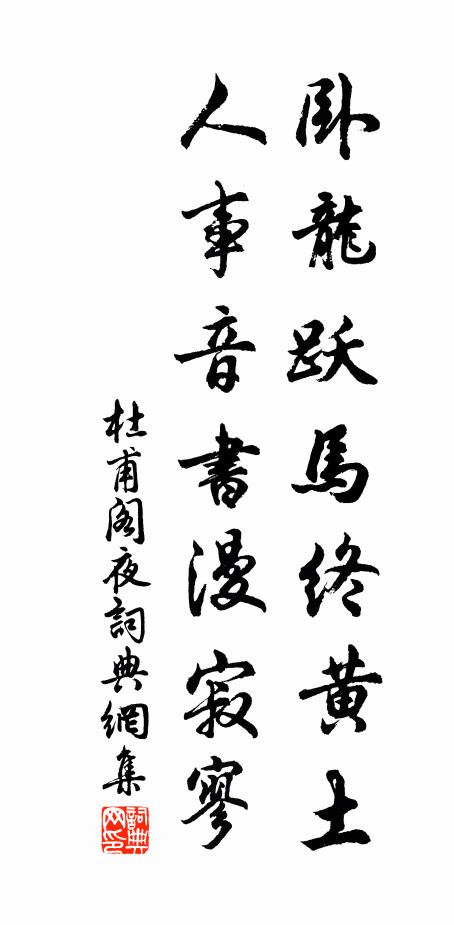 卧龍跃馬终黄土
人事音書漫寂寥
杜甫阁夜詞典網集
詞典网印